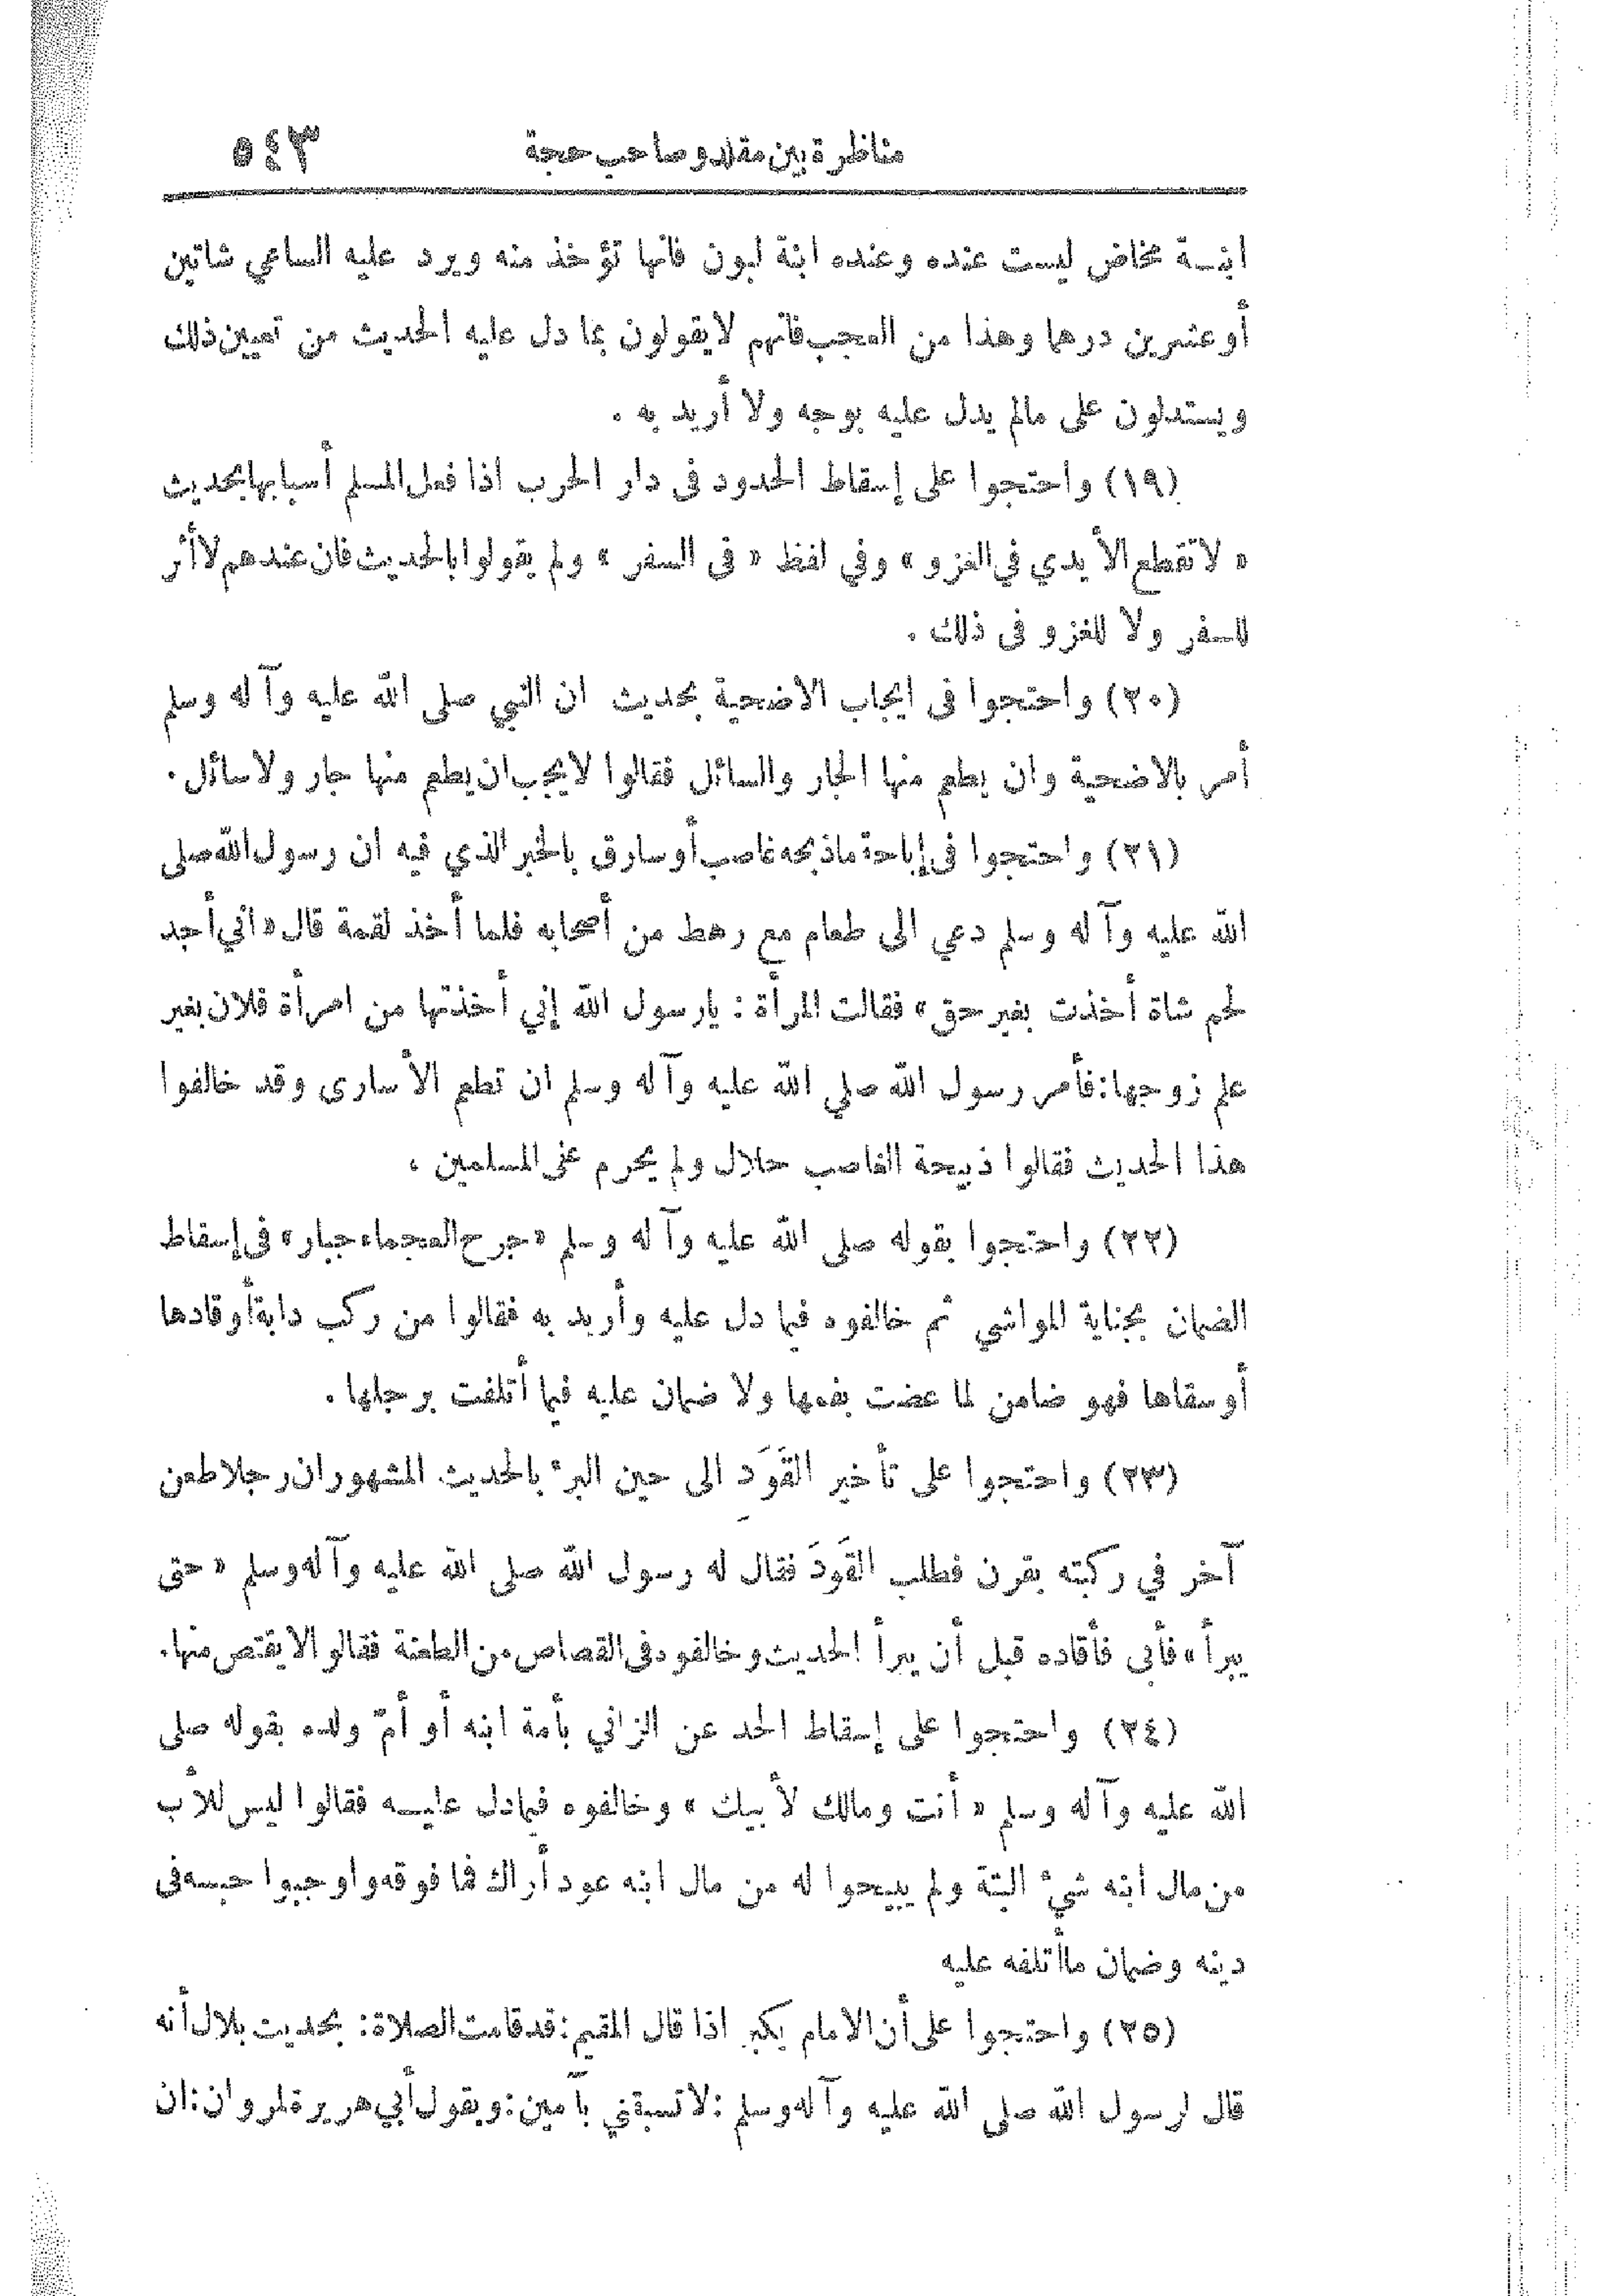 مناظرة بين مقلد وصاحب حجة ٥٤٣
ابنة مخاض ليست عنده وعنده ابنة لبون فانها تؤخذ منه ويرد عليه الساعي شاتين
أو عشرين درهما وهذا من العجب فانهم لا يقولون بما دل عليه الحديث من تعيين ذلك
ويستدلون على مالم يدل عليه بوجه ولا أريد به .
(١٩) واحتجوا على إسقاط الحدود فى دار الحرب اذا فعل المسلم أسبابها بحديث
« لا تقطع الأيدي في الغزو » وفي لفظ « فى السفر » ولم يقولوا بالحديث فان عندهم لا أثر
للسفر ولا للغزو فى ذلك .
(٢٠) واحتجوا فى ايجاب الاضحية بحديث ان النبي صلى الله عليه وآله وسلم
أمر بالاضحية وان يطعم منها الجار والسائل فقالوا لا يجب ان يطعم منها جار ولا سائل .
(٢١) واحتجوا فى إباحة ماذبحه غاصب أو سارق بالخبر الذي فيه ان رسول الله صلى
الله عليه وآله وسلم دعي الى طعام مع رهط من أصحابه فلما أخذ لقمة قال « اني أجد
لحم شاة أخذت بغير حق » فقالت المرأة : يارسول الله إني أخذتها من امرأة فلان بغير
علم زوجها : فأمر رسول الله صلي الله عليه وآله وسلم ان تطعم الأسارى وقد خالفوا
هذا الحديث فقالوا ذبيحة الغاصب حلال ولم يحرم على المسلمين ،
(٢٢) واحتجوا بقوله صلى الله عليه وآله وسلم « جرح العجماء جبار » فى إسقاط
الضمان بجناية المواشي ثم خالفوه فيما دل عليه وأريد به فقالوا من ركب دابة أو قادها
أو سقاها فهو ضامن لما عضت بفمها ولا ضمان عليه فيما أتلفت برجلها .
(٢٣) واحتجوا على تأخير القَوَد الى حين البرء بالحديث المشهور ان رجلا طعن
آخر في ركبته بقرن فطلب القَوَدَ فقال له رسول الله صلى الله عليه وآله وسلم « حتى
يبرأ » فأبى فأقاده قبل أن يبرأ الحديث وخالفوه فى القصاص من الطعنة فقالوا لا يقتص منها .
(٢٤) واحتجوا على إسقاط الحد عن الزاني بأمة ابنه أو أمّ ولده بقوله صلى
الله عليه وآله وسلم « أنت ومالك لأبيك » وخالفوه فيما دل عليه فقالوا ليس للأب
من مال ابنه شيء البتة ولم يبيحوا له من مال ابنه عود أراك فما فوقه واوجبوا حبسه فى
دينه وضمان ما أتلفه عليه
(٢٥) واحتجوا على أن الامام يكبر اذا قال المقيم : قد قامت الصلاة : بحديث بلال أنه
قال لرسول الله صلى الله عليه وآله وسلم : لا تسبقني بآمين : وبقول أبي هريرة لمروان : ان